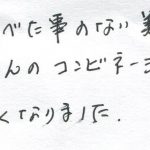 べた事のない
んのコンビネー
くなりました.